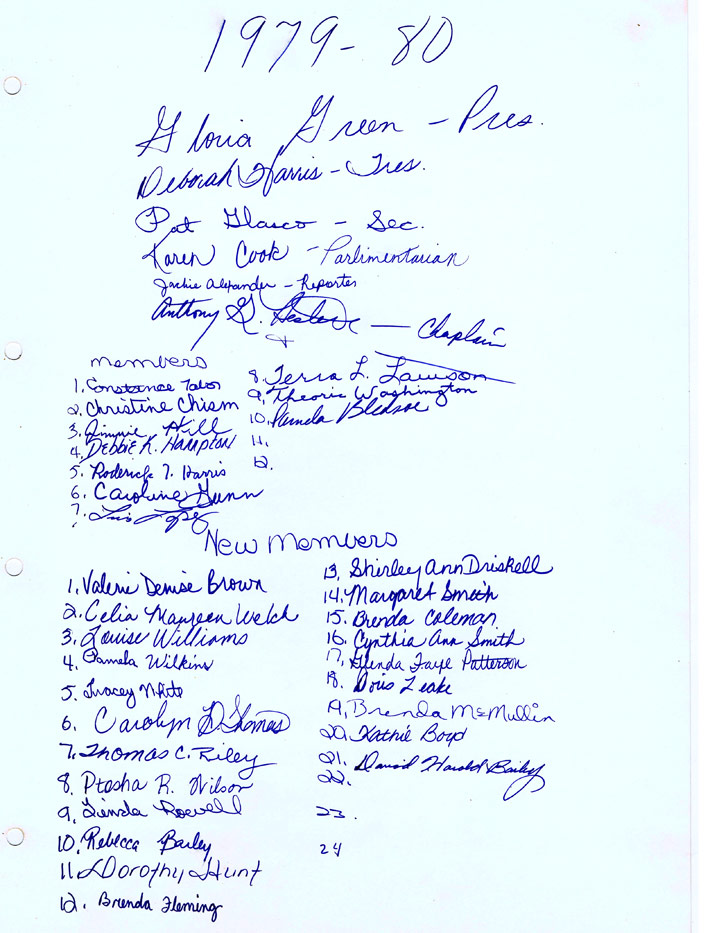 1979-80
Gloria Green - Pres.
Deborah Harris - Tres.
Pat Glasco - Sec.
Karen Cook - Parlimentarian
Jackie Alexander - Reporter
Anthony G. — Chaplain
members
1. Constance
2. Christine Chism
3. Jimmie Hill
4. Debbie K. Hampton
5. Roderick T. Harris
6. Caroline Gunn
7. Luis Lopez
8. Terra L. Lawson
9. Theoric Washington
10. Pamela Bledsoe
11.
12.
New Members
1. Valerie Denise Brown
2. Celia Maureen Welch
3. Louise Williams
4. Pamela Wilkins
5. Tracey White
6. Carolyn D. Thomas
7. Thomas C. Riley
8. Ptosha R. Wilson
9. Linda Roevell
10. Rebecca Bailey
11. Dorothy Hunt
12. Brenda Fleming
13. Shirley Ann Driskell
14. Margaret Smith
15. Brenda Coleman
16. Cynthia Ann Smith
17. Glenda Faye Patterson
18. Doris Leake
19. Brenda McMullin
20. Kathie Boyd
21. David Harold Bailey
22.
23.
24